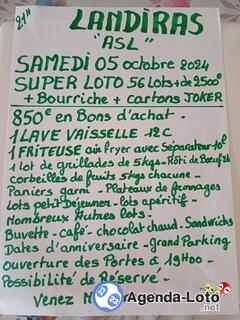 21H
LANDIRAS
"ASL"
SAMEDI 05 octobre 2024
SUPER LOTO 56 Lots + de 2500€
+ Bourriche + cartons JOKER
850€ en Bons d'achat.
1 LAVE VAISSELLE 12C
1 FRITEUSE air fryer avec Séparateur - 10l
1 lot de grillades de 5kgs - Rôti de Bœuf 2k
corbeilles de fruits 5kgs chacune -
Paniers garni - Plateaux de fromages
Lots petit Déjeuner - lots apéritif -
Nombreux Autres lots -
Buvette - café - chocolat chaud - Sandwichs
Dates d'anniversaire - grand Parking
Ouverture des Portes à 19H00 -
Possibilité de Réservé -
Venez N
Agenda-Loto
.net